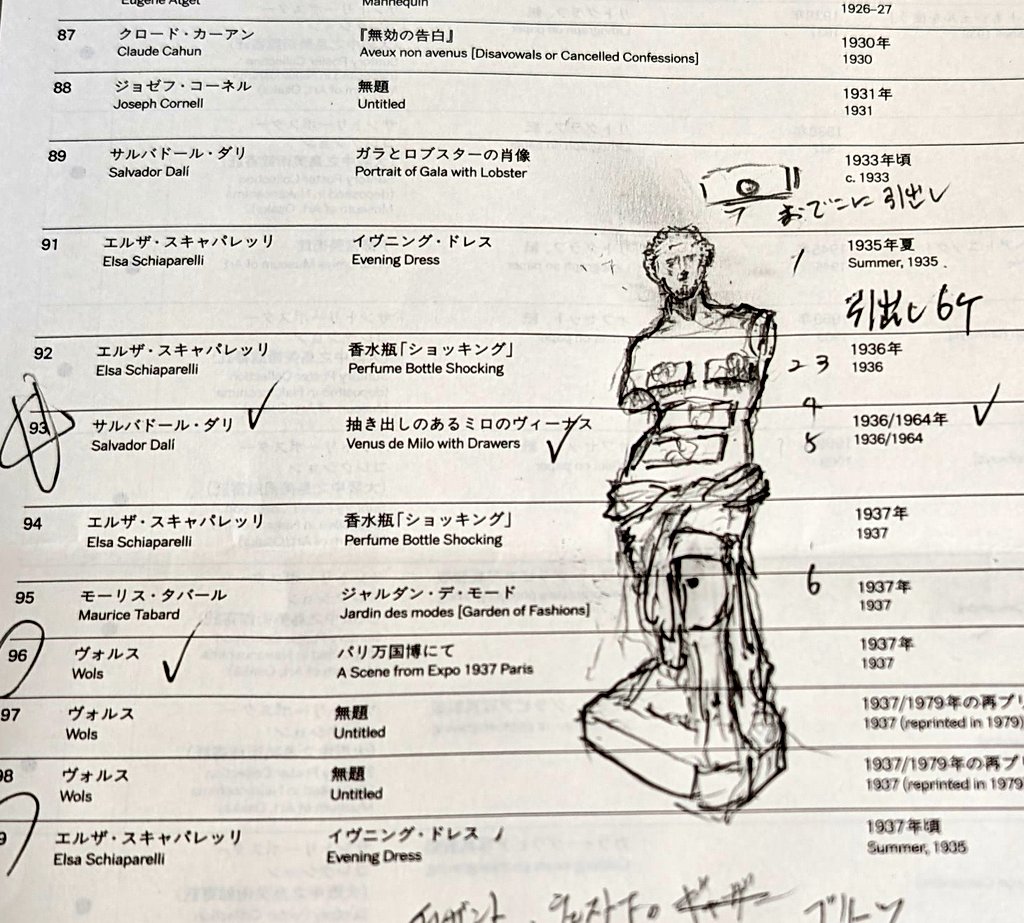 Eugène Atget Mannequin 1926–27
87 クロード・カーアン 『無効の告白』 1930年
Claude Cahun Aveux non avenus [Disavowals or Cancelled Confessions] 1930
88 ジョゼフ・コーネル 無題 1931年
Joseph Cornell Untitled 1931
89 サルバドール・ダリ ガラとロブスターの肖像 1933年頃
Salvador Dalí Portrait of Gala with Lobster c. 1933
おでこに引出し
91 エルザ・スキャパレッリ イヴニング・ドレス 1935年夏
Elsa Schiaparelli Evening Dress 1 Summer, 1935
引出し6ケ
92 エルザ・スキャパレッリ 香水瓶「ショッキング」 1936年
Elsa Schiaparelli Perfume Bottle Shocking 2 3 1936
4
93 サルバドール・ダリ 抽き出しのあるミロのヴィーナス 1936/1964年
Salvador Dalí Venus de Milo with Drawers 5 1936/1964
94 エルザ・スキャパレッリ 香水瓶「ショッキング」 1937年
Elsa Schiaparelli Perfume Bottle Shocking 1937
95 モーリス・タバール ジャルダン・デ・モード 6 1937年
Maurice Tabard Jardin des modes [Garden of Fashions] 1937
96 ヴォルス パリ万国博にて 1937年
Wols A Scene from Expo 1937 Paris 1937
97 ヴォルス 無題 1937/1979年の再プリ
Wols Untitled 1937 (reprinted in 1979)
98 ヴォルス 無題 1937/1979年の再プリ
Wols Untitled 1937 (reprinted in 1979
9 エルザ・スキャパレッリ イヴニング・ドレス 1937年頃
Elsa Schiaparelli Evening Dress Summer, 1935